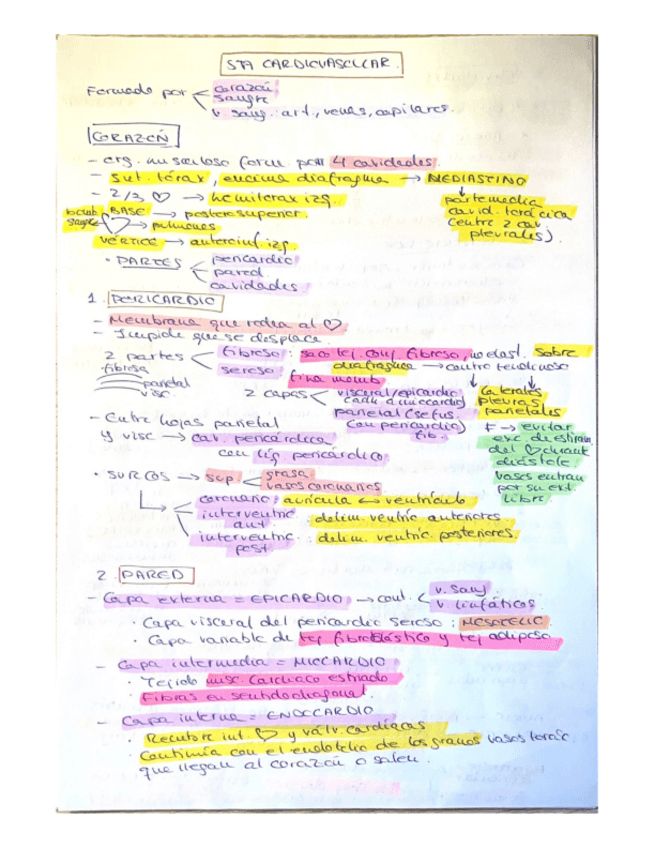 STA CARDIOVASCULAR.
Formado por
corazón
sangre
v. sang: art., venas, capilares.
CORAZÓN
- org. musculoso form. por 4 cavidades.
- sut. tórax, encima diafragma → MEDIASTINO
- 2/3 ♡ → hemitorax izq.
parte media
cavid. torácica
(entre 2 cav.
pleurales).
BASE → posterosuperior.
sangre → pulmones
VÉRTICE → anteroinf. izq.
· PARTES
pericardio
pared.
cavidades.
1. PERICARDIO
- Membrana que rodea al ♡.
- Impide que se desplace.
2 partes
fibroso: saco tej. conj. fibroso, no elast. Sobre
diafragma → centro tendinoso
seroso: fina memb.
fibrosa
parietal
visc.
2 capas
visceral/epicardio
parietal (se fus.
con pericardio
fib.
laterales
pleuras
parietales
F → evitar
exc. de estiram
del ♡ durant
diástole
vasos entran
por su ext.
libre.
- Entre hojas parietal
y visc → cav. pericárdica
con líq pericárdico.
· SURCOS → sup
grasa
vasos coronarios
coronario: aurícula ↔ ventrículo
interventric. ant. : delim. ventríc. anteriores
interventric. post : delim. ventríc. posteriores.
2. PARED
- Capa externa = EPICARDIO → cont.
v. sang.
v. linfáticos.
· Capa visceral del pericardio seroso: MESOTELIO
· Capa variable de tej fibroelástico y tej adiposo
- Capa intermedia = MIOCARDIO
· Tejido musc. cardiaco estriado
· Fibras en sentido diagonal.
- Capa interna = ENDOCARDIO
· Recubre int. ♡ y válv. cardiacas
Continúa con el endotelio de los grandes vasos torác.
que llegan al corazón o salen.